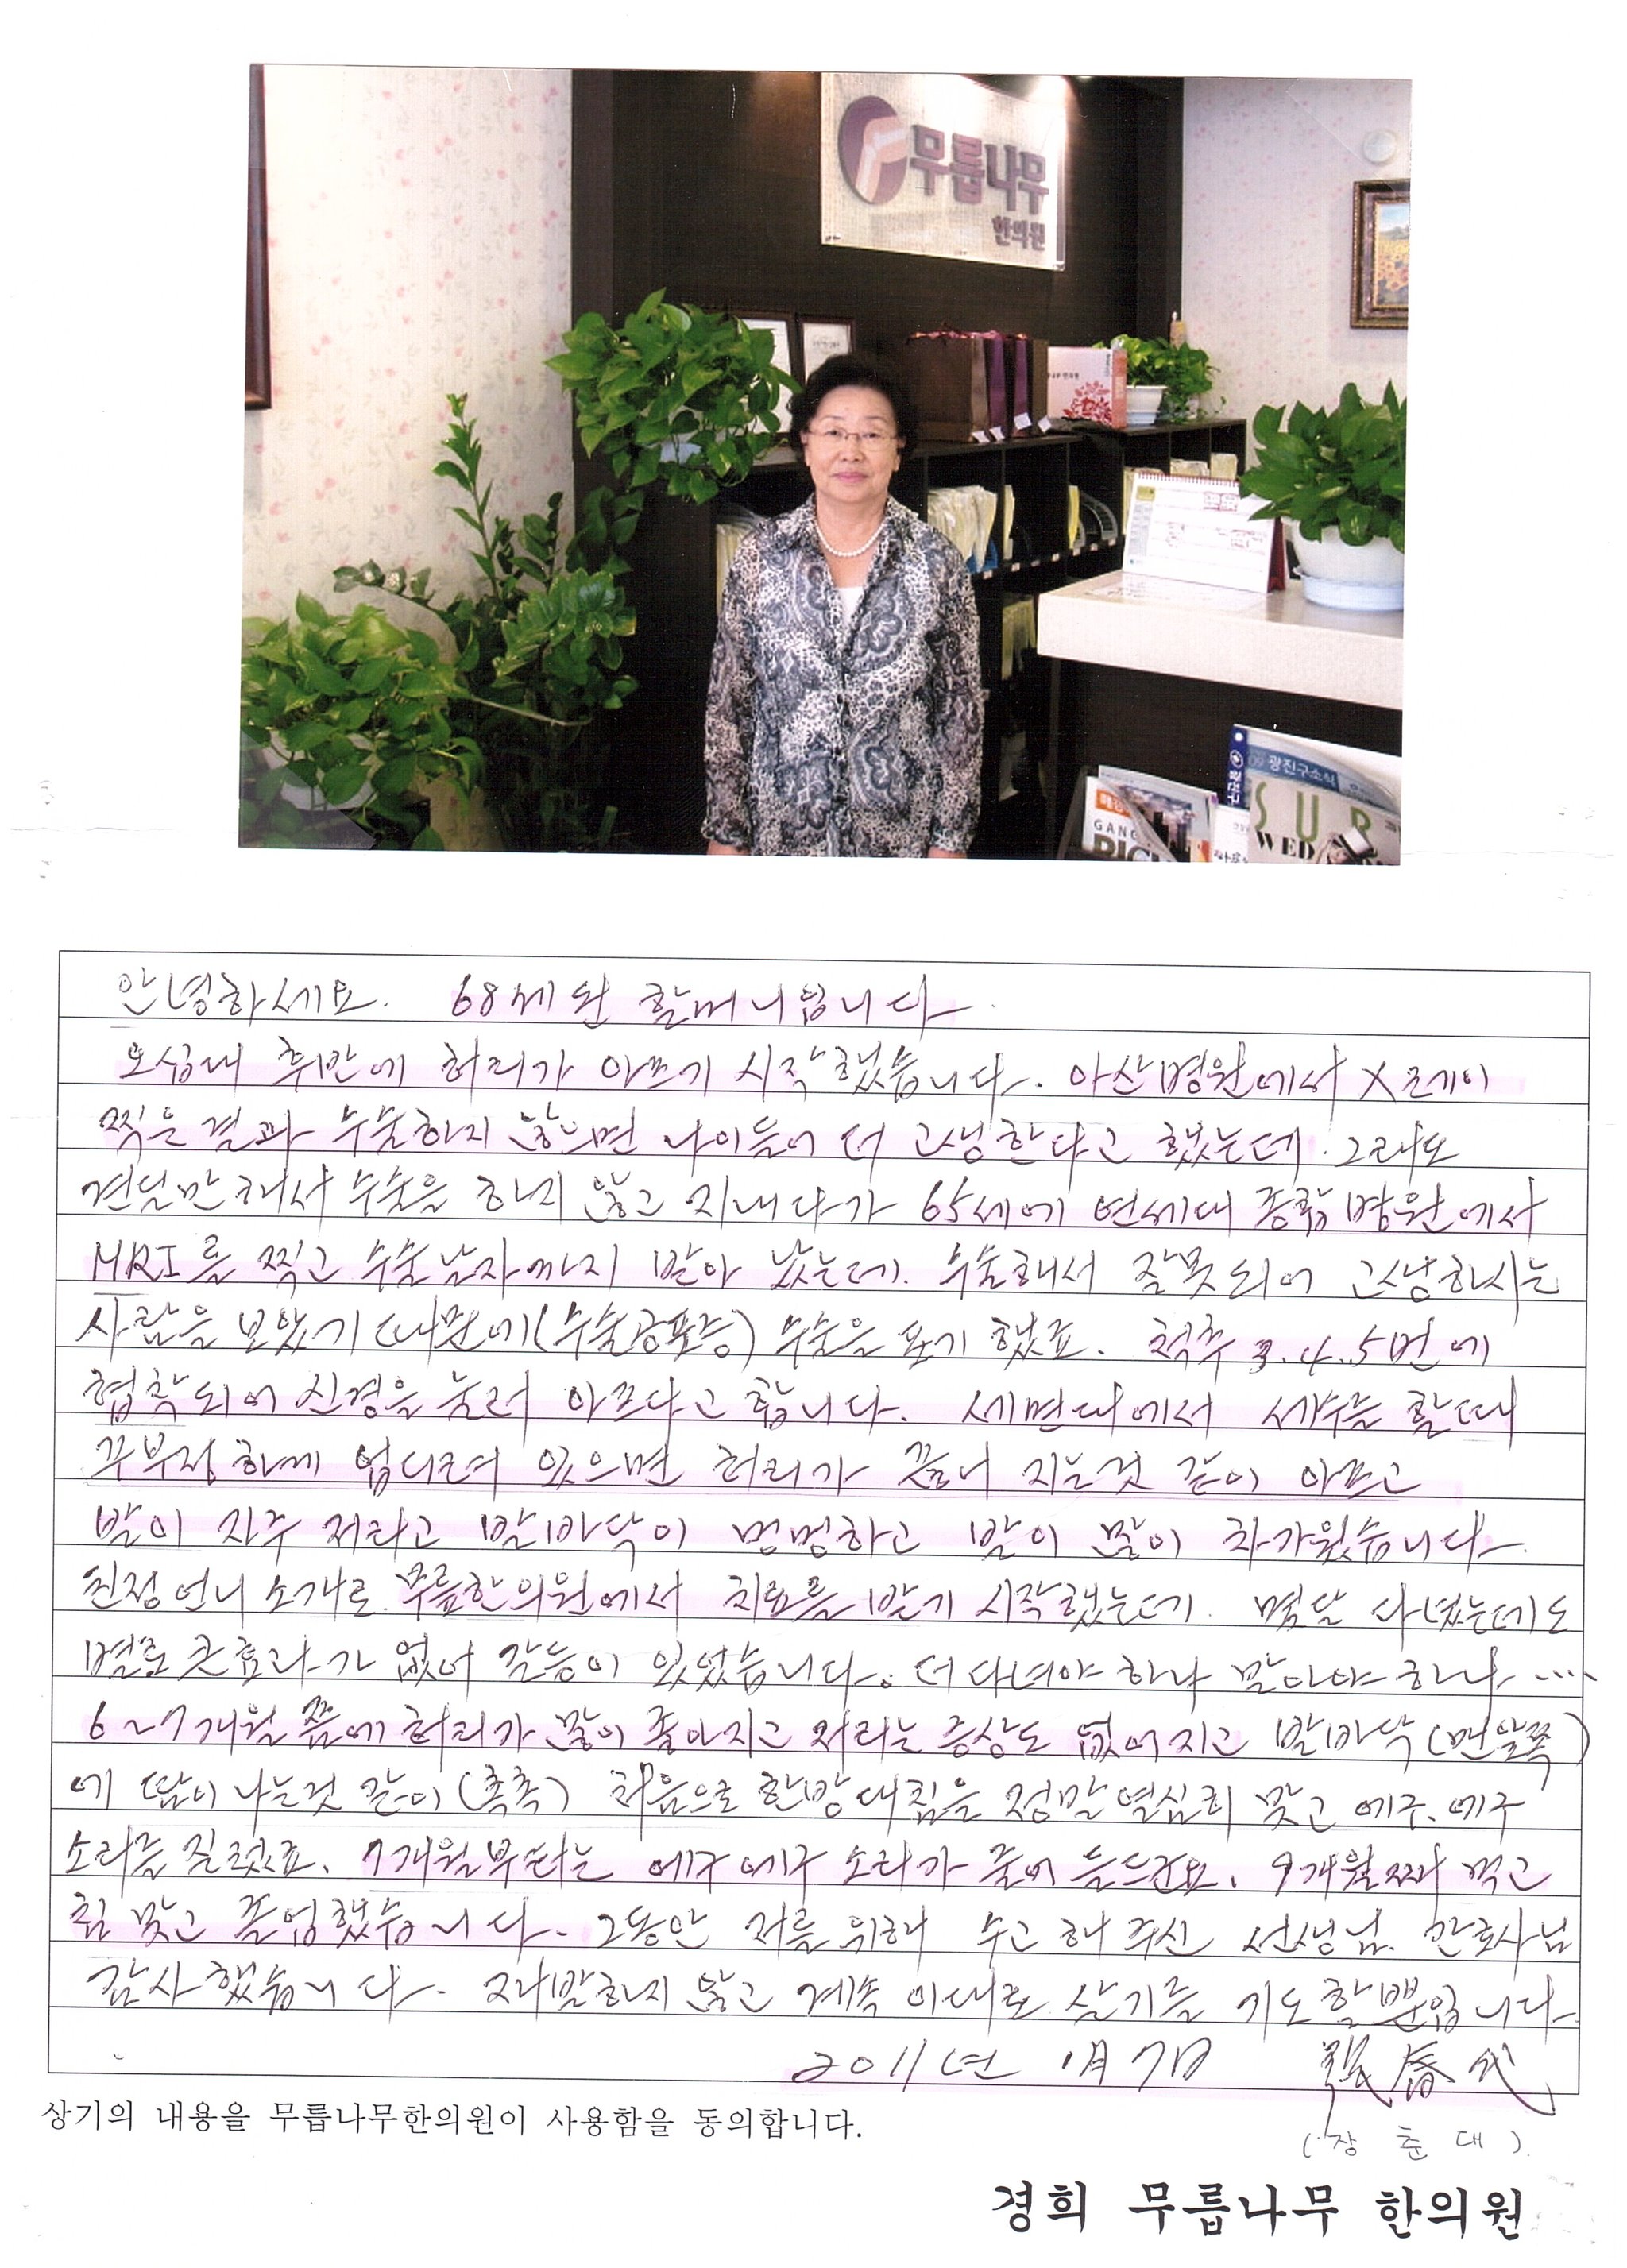 무릎나무
한의원
광진구소식
SUR
WED
GANG
RICH
안녕하세요. 68세 된 할머니입니다.
오십대 후반에 허리가 아프기 시작했습니다. 아산병원에서 X레이
찍은 결과 수술하지 않으면 나이들어 더 고생한다고 했는데. 그래도
견딜만 해서 수술을 하지 않고 지내다가 65세에 연세대 종합병원에서
MRI를 찍고 수술날자까지 받아 놨는데. 수술해서 잘못되어 고생하시는
사람을 보았기 때문에(수술공포증) 수술을 포기 했죠. 척추 3.4.5번에
협착되어 신경을 눌러 아프다고 합니다. 세면대에서 세수를 할때
꾸부정하게 업디려 있으면 허리가 끊어 지는것 같이 아프고
발이 자주 저리고 발바닥이 멍멍하고 발이 많이 차가웠습니다.
친정언니 소개로 무릎한의원에서 치료를 받기 시작했는데. 몇달 다녔는데도
별로 큰효과가 없어 갈등이 있었습니다. 더다녀야 하나 말아야 하나 ....
6~7개월 쯤에 허리가 많이 좋아지고 저리는 증상도 없어지고 발바닥(맨앞쪽)
에 땀이 나는것 같이(촉촉) 처음으로 한방대침을 정말 열심히 맞고 에구. 에구
소리를 질렀죠. 7개월부터는 에구에구 소리가 줄어 들드군요. 9개월째 먹고
침맞고 졸업했습니다. 그동안 저를 위해 수고해 주신 선생님. 간호사님
감사했습니다. 재발하지 않고 계속 이대로 살기를 기도할뿐입니다.
2011년 1月 7日 張春代
상기의 내용을 무릎나무한의원이 사용함을 동의합니다.
(장 춘 대)
경희 무릎나무 한의원